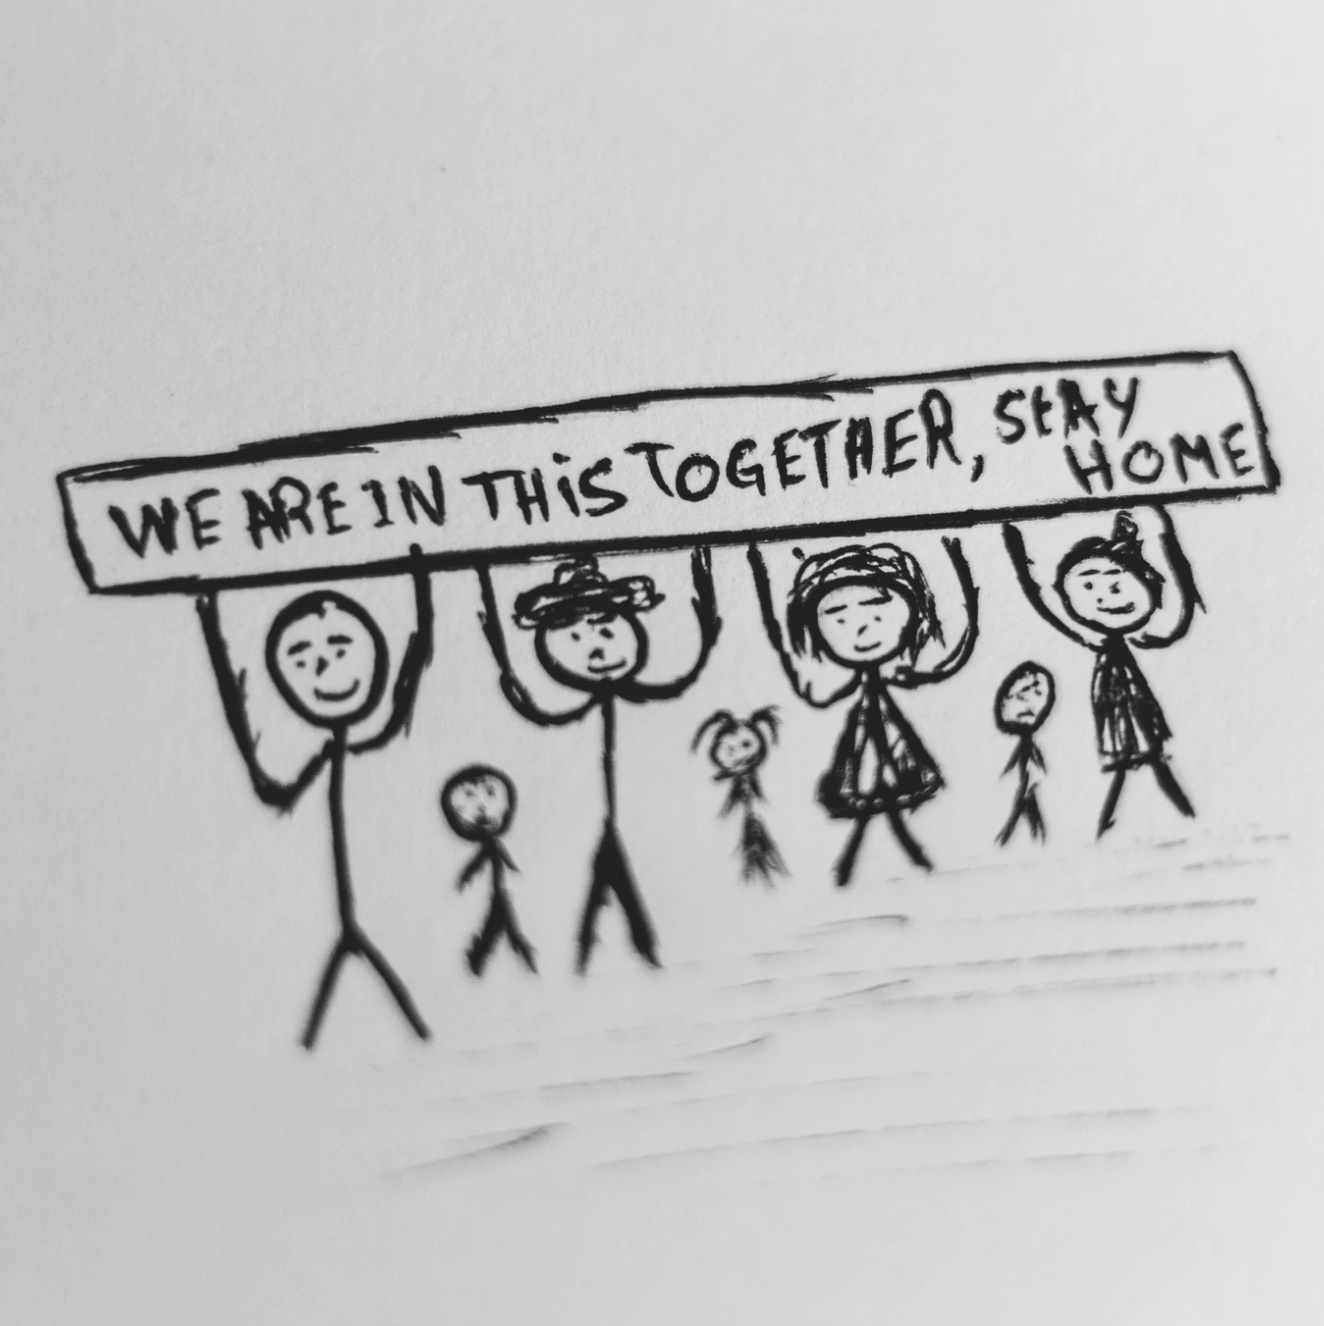 WE ARE IN THIS TOGETHER, StAY
HOME